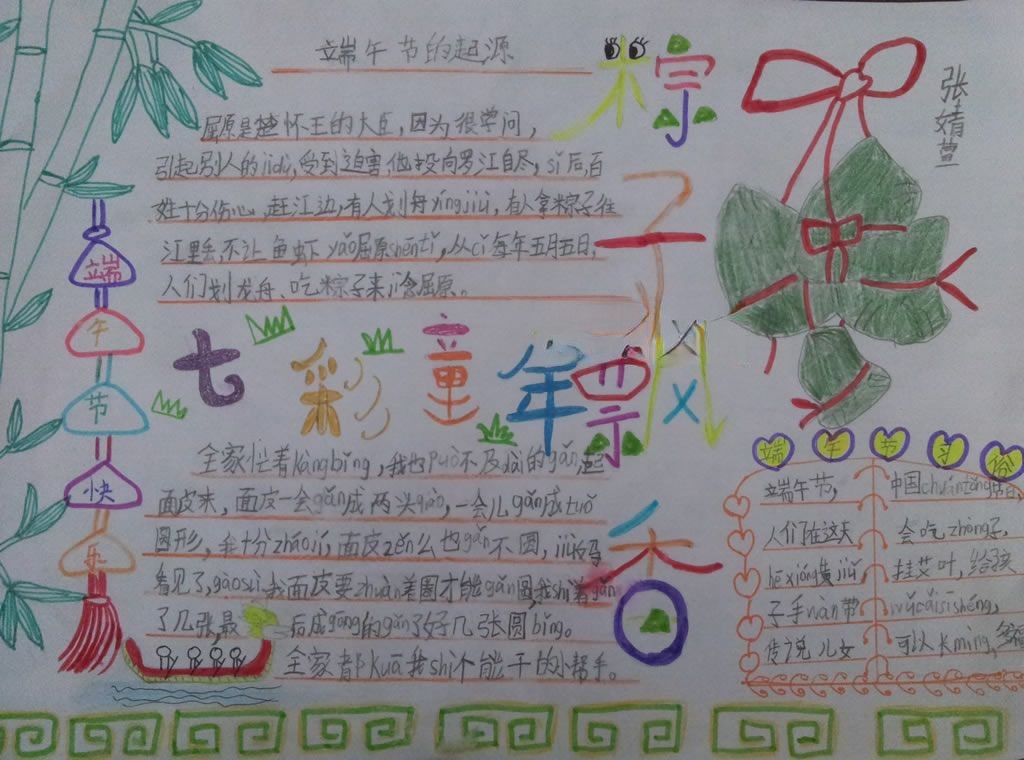 端午节的起源
屈原是楚怀王的大臣，因为很学问，
引起别人的jídù，受到迫害，他投向罗江自尽，sǐ后，百
姓十分伤心，赶江边，有人划舟xíngjiù，有人拿粽子往
江里丢，不让鱼虾yǎo屈原shēntǐ，从cǐ每年五月五日，
人们划龙舟、吃粽子来jì念屈原。
粽
子
飘
香
张婧萱
端
午
节
快
乐
七彩童年
票
全家忙着kǎngbǐng，我也può不及dài的gǎn起
面皮来，面皮一会gǎn成两头qiáo，一会儿gǎn成tuǒ
圆形，我十分zháojí，面皮zěn么也gǎn不圆，妈妈
看见了，gàosù我面皮要zhuàn着圈才能gǎn圆，我shì着gǎn
了几张，最后成gōng的gǎn了好几张圆bǐng。
全家都kuā我shì个能干的小帮手。
端午节习俗
端午节，
人们在这天
hē xióng黄jiǔ
子手wàn带
传说儿女
中国chuántǒng节日
会吃zhòng子，
挂艾叶，给孩
wǔcǎisīshéng，
可以kmìng，